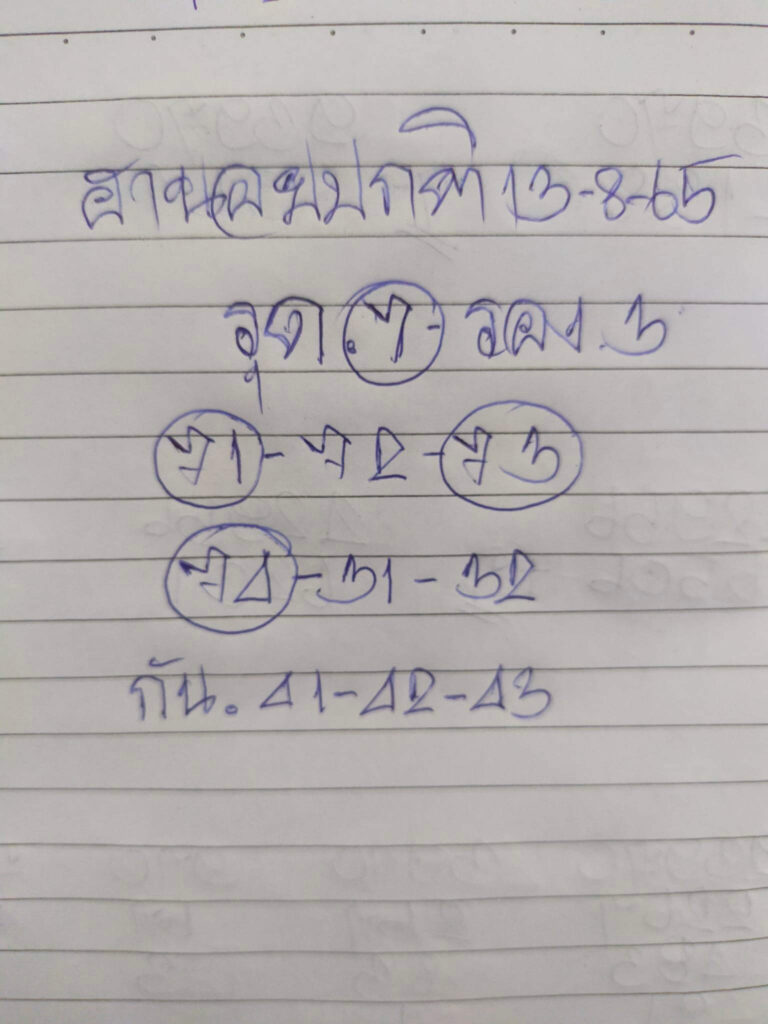 ฮานอยปกติ 13-8-65
จุด. 7 - รอง. 3
71-72-73
74-31-32
กัน. 41-42-43